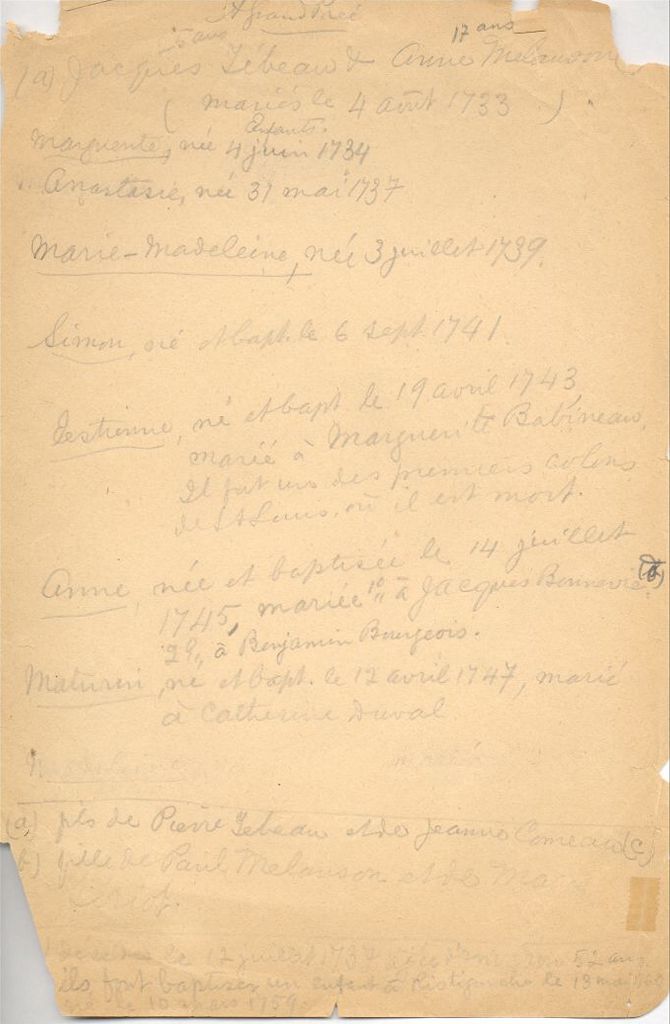 A Grand Pré
5 ans 17 ans
(a) Jacques & Anne Melanson
( mariés le 4 août 1733 )
Enfants.
Marguerite, née 4 juin 1734
Anastasie, née 31 mai 1737
Marie-Madeleine, née 3 juillet 1739.
Simon, né et bapt. le 6 sept. 1741
né et bapt le 19 avril 1743
marié à Marguerite Babineau,
Il fut un des premiers colons
de St Louis, où il est mort.
Anne, née et baptisée le 14 juillet
1745, mariée 1o à Jacques Bonnevie (d)
2o, à Benjamin Bourgeois.
Maturin, né et bapt. le 12 avril 1747, marié
à Catherine Duval
(a) fils de Pierre et de Jeanne Comeau (c)
b) fille de Paul Melanson et de
le 12 juillet 52 ans
ils font baptiser un enfant à Ristigouche le 13 mai
né le 10 mars 1759.